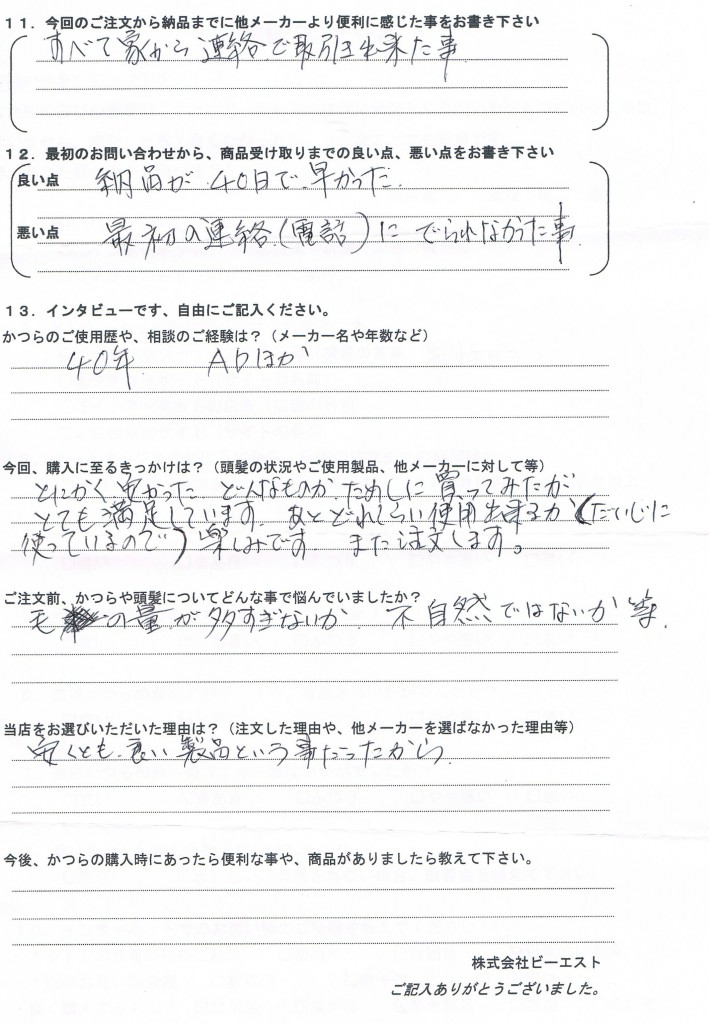 11．今回のご注文から納品までに他メーカーより便利に感じた事をお書き下さい
すべて家から連絡で取引き出来た事
12．最初のお問い合わせから、商品受け取りまでの良い点、悪い点をお書き下さい
良い点 納品が40日で早かった.
悪い点 最初の連絡(電話)にでられなかった事
13．インタビューです、自由にご記入ください。
かつらのご使用歴や、相談のご経験は？（メーカー名や年数など）
40年 ADほか
今回、購入に至るきっかけは？（頭髪の状況やご使用製品、他メーカーに対して等）
とにかく安かった どんなものかためしに買ってみたが
とても満足しています あとどれくらい使用出来るか(だいじに
使っているので)楽しみです また注文します。
ご注文前、かつらや頭髪についてどんな事で悩んでいましたか？
毛の量が多すぎないか 不自然ではないか等.
当店をお選びいただいた理由は？（注文した理由や、他メーカーを選ばなかった理由等）
安くとも良い製品という事だったから.
今後、かつらの購入時にあったら便利な事や、商品がありましたら教えて下さい。
株式会社ビーエスト
ご記入ありがとうございました。